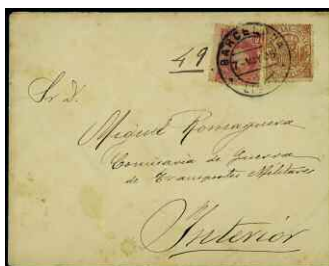 49
BARCELONA
Sr. D.
Miguel Romaguera
Comisaria de Guerra
de Transportes Militares
Interior